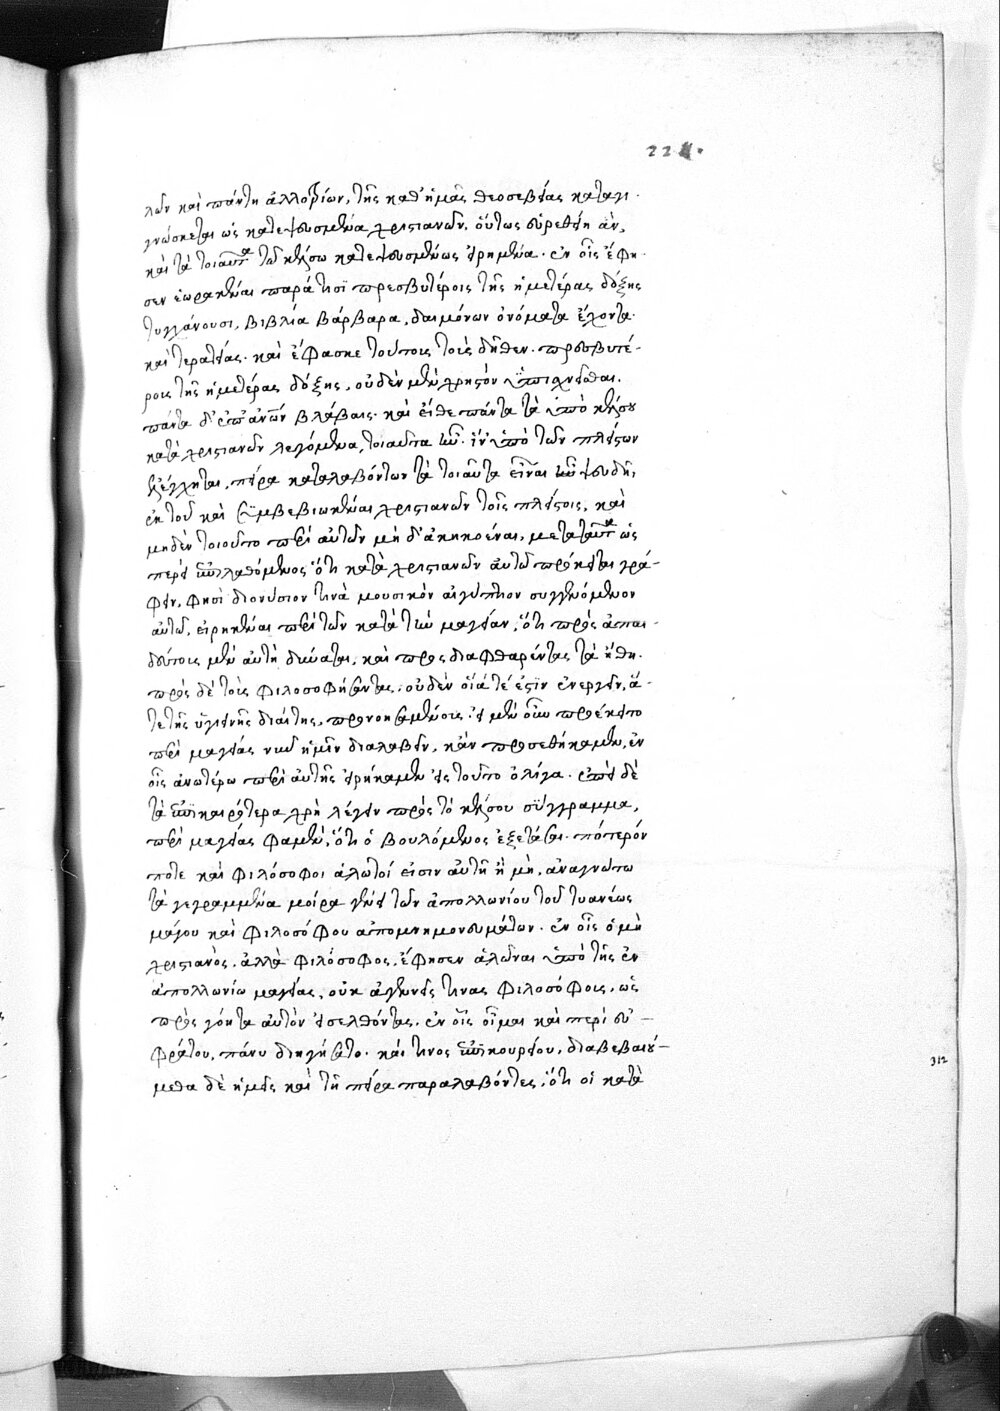 221.
λῶν καὶ πάντη ἀλλοτρίων, τῆς καθ' ἡμᾶς θεοσεβείας καταγι
γνώσκεται ὡς κατεψευσμένα χριστιανῶν. οὕτως εὑρεθείη ἂν,
καὶ τὰ τοιαῦτα τῷ κέλσῳ κατεψευσμένως εἰρημένα. ἐν οἷς ἔφη
σεν ἑωρακέναι παρά τισι πρεσβυτέροις τῆς ἡμετέρας δόξης
τυγχάνουσι, βιβλία βάρβαρα, δαιμόνων ὀνόματα ἔχοντα
καὶ τερατείας. καὶ ἔφασκε τούτους τοὺς δῆθεν πρεσβυτέ-
ρους τῆς ἡμετέρας δόξης, οὐδὲν μὲν χρηστὸν ὑπισχνεῖσθαι.
πάντα δ' ἐπ' ἀνθρώπων βλάβαις. καὶ εἴθε πάντα τὰ ὑπὸ κέλσου
κατὰ χριστιανῶν λεγόμενα, τοιαῦτα ἦν. ἵν' ὑπὸ τῶν πλείστων
ἐλέγχηται, πείρᾳ καταλαβόντων τὰ τοιαῦτα εἶναι ψευδῆ,
ἐκ τοῦ καὶ συμβεβιωκέναι χριστιανῶν τοῖς πλείστοις, καὶ
μηδὲν τοιοῦτο περὶ αὐτῶν μηδ' ἀκηκοέναι, μετὰ ταῦτα ὡς
περεὶ ἐπιλαθόμενος ὅτι κατὰ χριστιανῶν αὐτῷ πρόκειται γρά-
φειν, φησὶ διονύσιον τινὰ μουσικὸν αἰγύπτιον συγγενόμενον
αὐτῷ, εἰρηκέναι περὶ τῶν κατὰ τὴν μαγείαν, ὅτι πρὸς ἀπαι
δεύτους μὲν αὐτὴ δύναται, καὶ πρὸς διαφθαρέντας τὰ ἤθη.
πρὸς δὲ τοὺς φιλοσοφήσαντας, οὐδὲν οἵα τέ ἐστιν ἐνεργεῖν, ἅ-
τε τῆς ὑγιεινῆς διαίτης, προνοησαμένους. εἰ μὲν οὖν προέκειτο
περὶ μαγείας νῦν ἡμῖν διαλαβεῖν, κἂν προσεθήκαμεν, ἐν
οἷς ἀνωτέρω περὶ αὐτῆς εἰρήκαμεν εἰς τοῦτο ὀλίγα. ἐπεὶ δὲ
τὰ ἐπικαιρότερα χρὴ λέγειν πρὸς τὸ κέλσου σύγγραμμα,
περὶ μαγείας φαμὲν, ὅτι ὁ βουλόμενος ἐξετάσαι πότερόν
ποτε καὶ φιλόσοφοι ἁλωτοί εἰσιν αὐτῇ ἢ μὴ, ἀναγνώτω
τὰ γεγραμμένα μοιραγένει τῶν ἀπολλωνίου τοῦ τυανέως
μάγου καὶ φιλοσόφου ἀπομνημονευμάτων. ἐν οἷς ὁ μὴ
χριστιανὸς, ἀλλὰ φιλόσοφος, ἔφησεν ἁλῶναι ὑπὸ τῆς ἐν
ἀπολλωνίῳ μαγείας, οὐκ ἀγεννεῖς τινας φιλοσόφους, ὡς
πρὸς γόητα αὐτὸν εἰσελθόντας. ἐν οἷς οἶμαι καὶ περὶ εὐ-
φράτου, πάνυ διηγήσατο. καί τινος ἐπικουρείου, διαβεβαιού-
μεθα δὲ ἡμεῖς καὶ τῇ πείρᾳ παραλαβόντες, ὅτι οἱ κατὰ
312